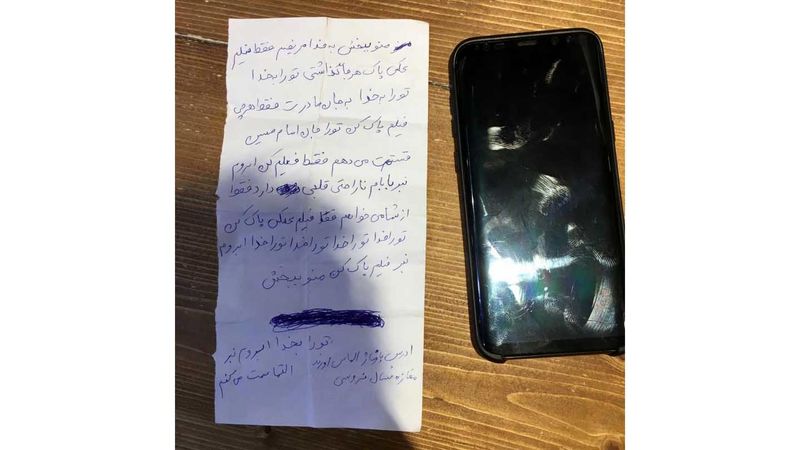 منو ببخش به خدا مریضم فقط فیلم
عکس پاک هر جا گذاشتی تورا بخدا
تورا به خدا به جان مادرت فقط هر چی
فیلم پاک کن تورا جان امام حسین
قسمت می دهم فقط فیلم کن ابروم
نبر بابام ناراحتی قلبی دارد فقط
از شما می خواهم فقط فیلم عکس پاک کن
تورا خدا تورا خدا تورا خدا تورا خدا ابروم
نبر فیلم پاک کن منو ببخش
تورا بخدا ابروم نبر
التماست می کنم
ادرس پاساژ الماس
مغازه فروسی